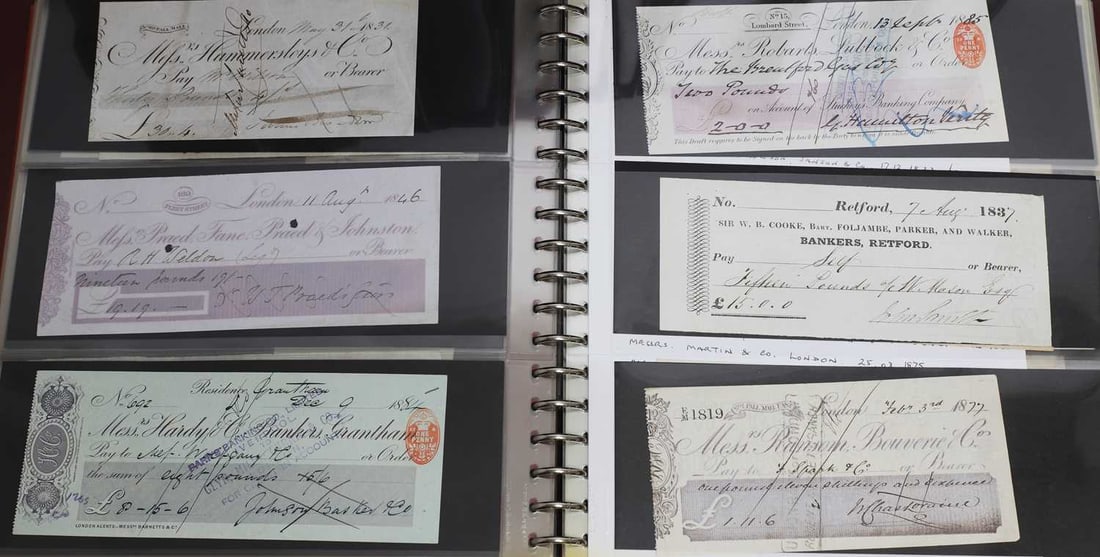 London May 31st 1831
Messrs Hammersleys & Co.
Pay or Bearer
£30.4.
No.
180
FLEET STREET
London 11 Augt 1846
Messrs Praed, Fane, Praed & Johnston.
Pay R H Weldon or Bearer
Nineteen pounds 19/-
£ 19.19.—
No. 692
Residence, Grantham
Dec 9 188
Messrs. Hardy & Co. Bankers, Grantham
Pay to Messrs & Co
or Order
the sum of eight pounds 15/6
£ 8-15-6
Johnson Basker & Co
LONDON AGENTS-MESSRS BARNETTS & CO.
ONE PENNY
No. 15,
Lombard Street,
No. London, 13 Sept 1885
Messrs. Robarts, Lubbock & Co.
Pay to The Brentford Gas Coy or Order
Two Pounds
on Account of Stuckey's Banking Company
2-0-0
This Draft requires to be Signed on the back by the Party
ONE PENNY
No. Retford, 7 Aug. 1837.
SIR W. B. COOKE, BART. FOLJAMBE, PARKER, AND WALKER,
BANKERS, RETFORD.
Pay Self or Bearer,
Fifteen Pounds a/c W. Mason Esqr
£15.0.0
MESSRS. MARTIN & CO. LONDON 25.03.1875
1819 London Feby 3rd 1877
Messrs Ransom, Bouverie & Co.
Pay to & Co or Bearer
one pound eleven shillings and sixpence
£ 1.11.6